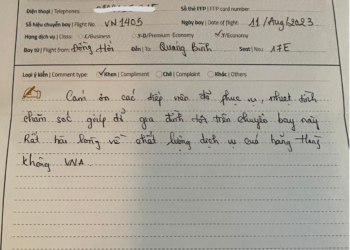 Điện thoại / Telephones
Số thẻ FFP / FFP card number
Số hiệu chuyến bay / Flight No. VN1405 Ngày bay / Date of flight 11/Aug/2023
Hạng dịch vụ / Class C/Business Y-D/Premium Economy Y/Economy
Bay từ / Flight from: Đồng Hới Đến / To: Quảng Bình Seat / No.: 17E
Loại ý kiến / Comment type Khen / Compliment Chê / Complaint Khác / Others
Cám ơn các tiếp viên đã phục vụ, nhiệt tình
chăm sóc giúp đỡ gia đình tôi trên chuyến bay này
Rất hài lòng về chất lượng dịch vụ của hãng Hàng
không VNA